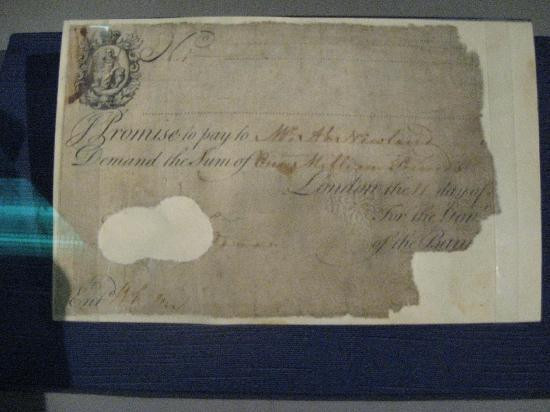 No
I Promise to pay to Mr. Ab. Newland
Demand the Sum of One Million Pounds
London the 11 day of
For the Gov
of the Ban
Ent